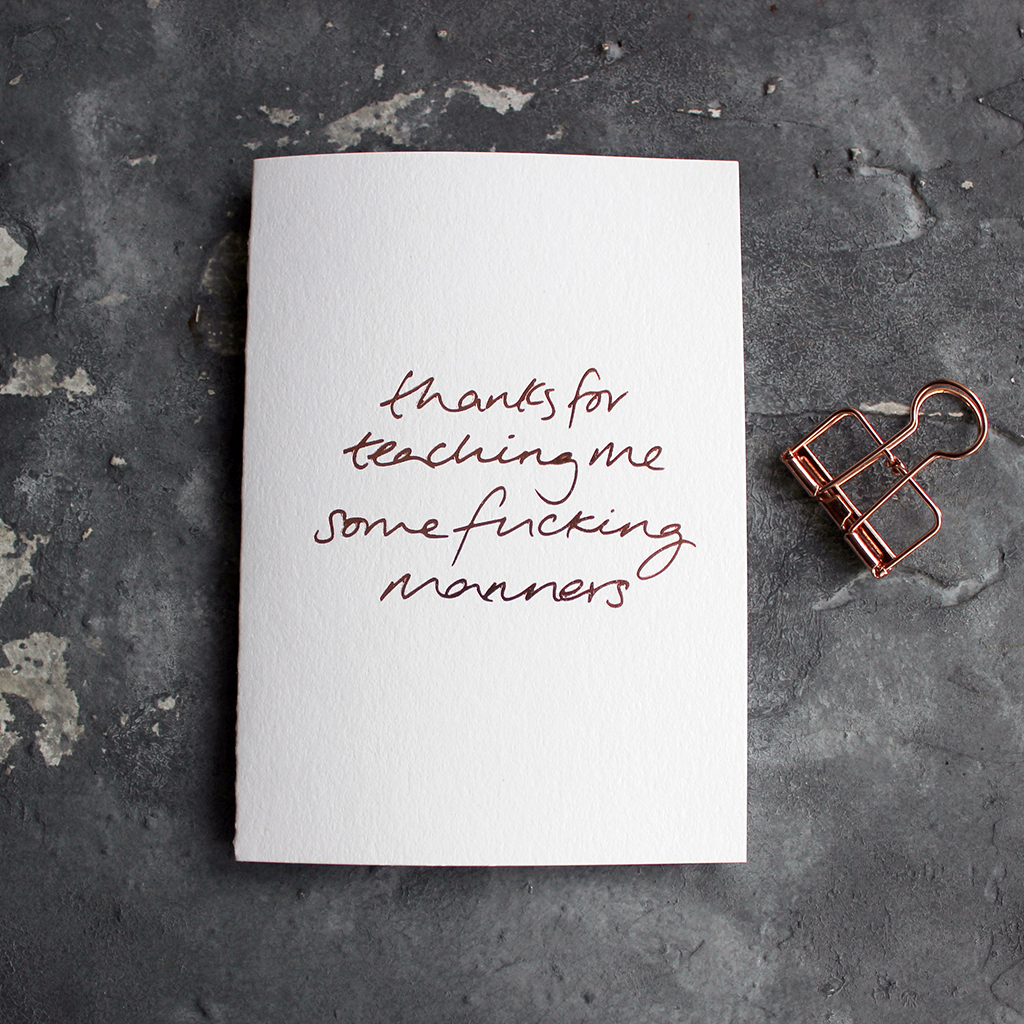 thanks for
teaching me
some fucking
manners